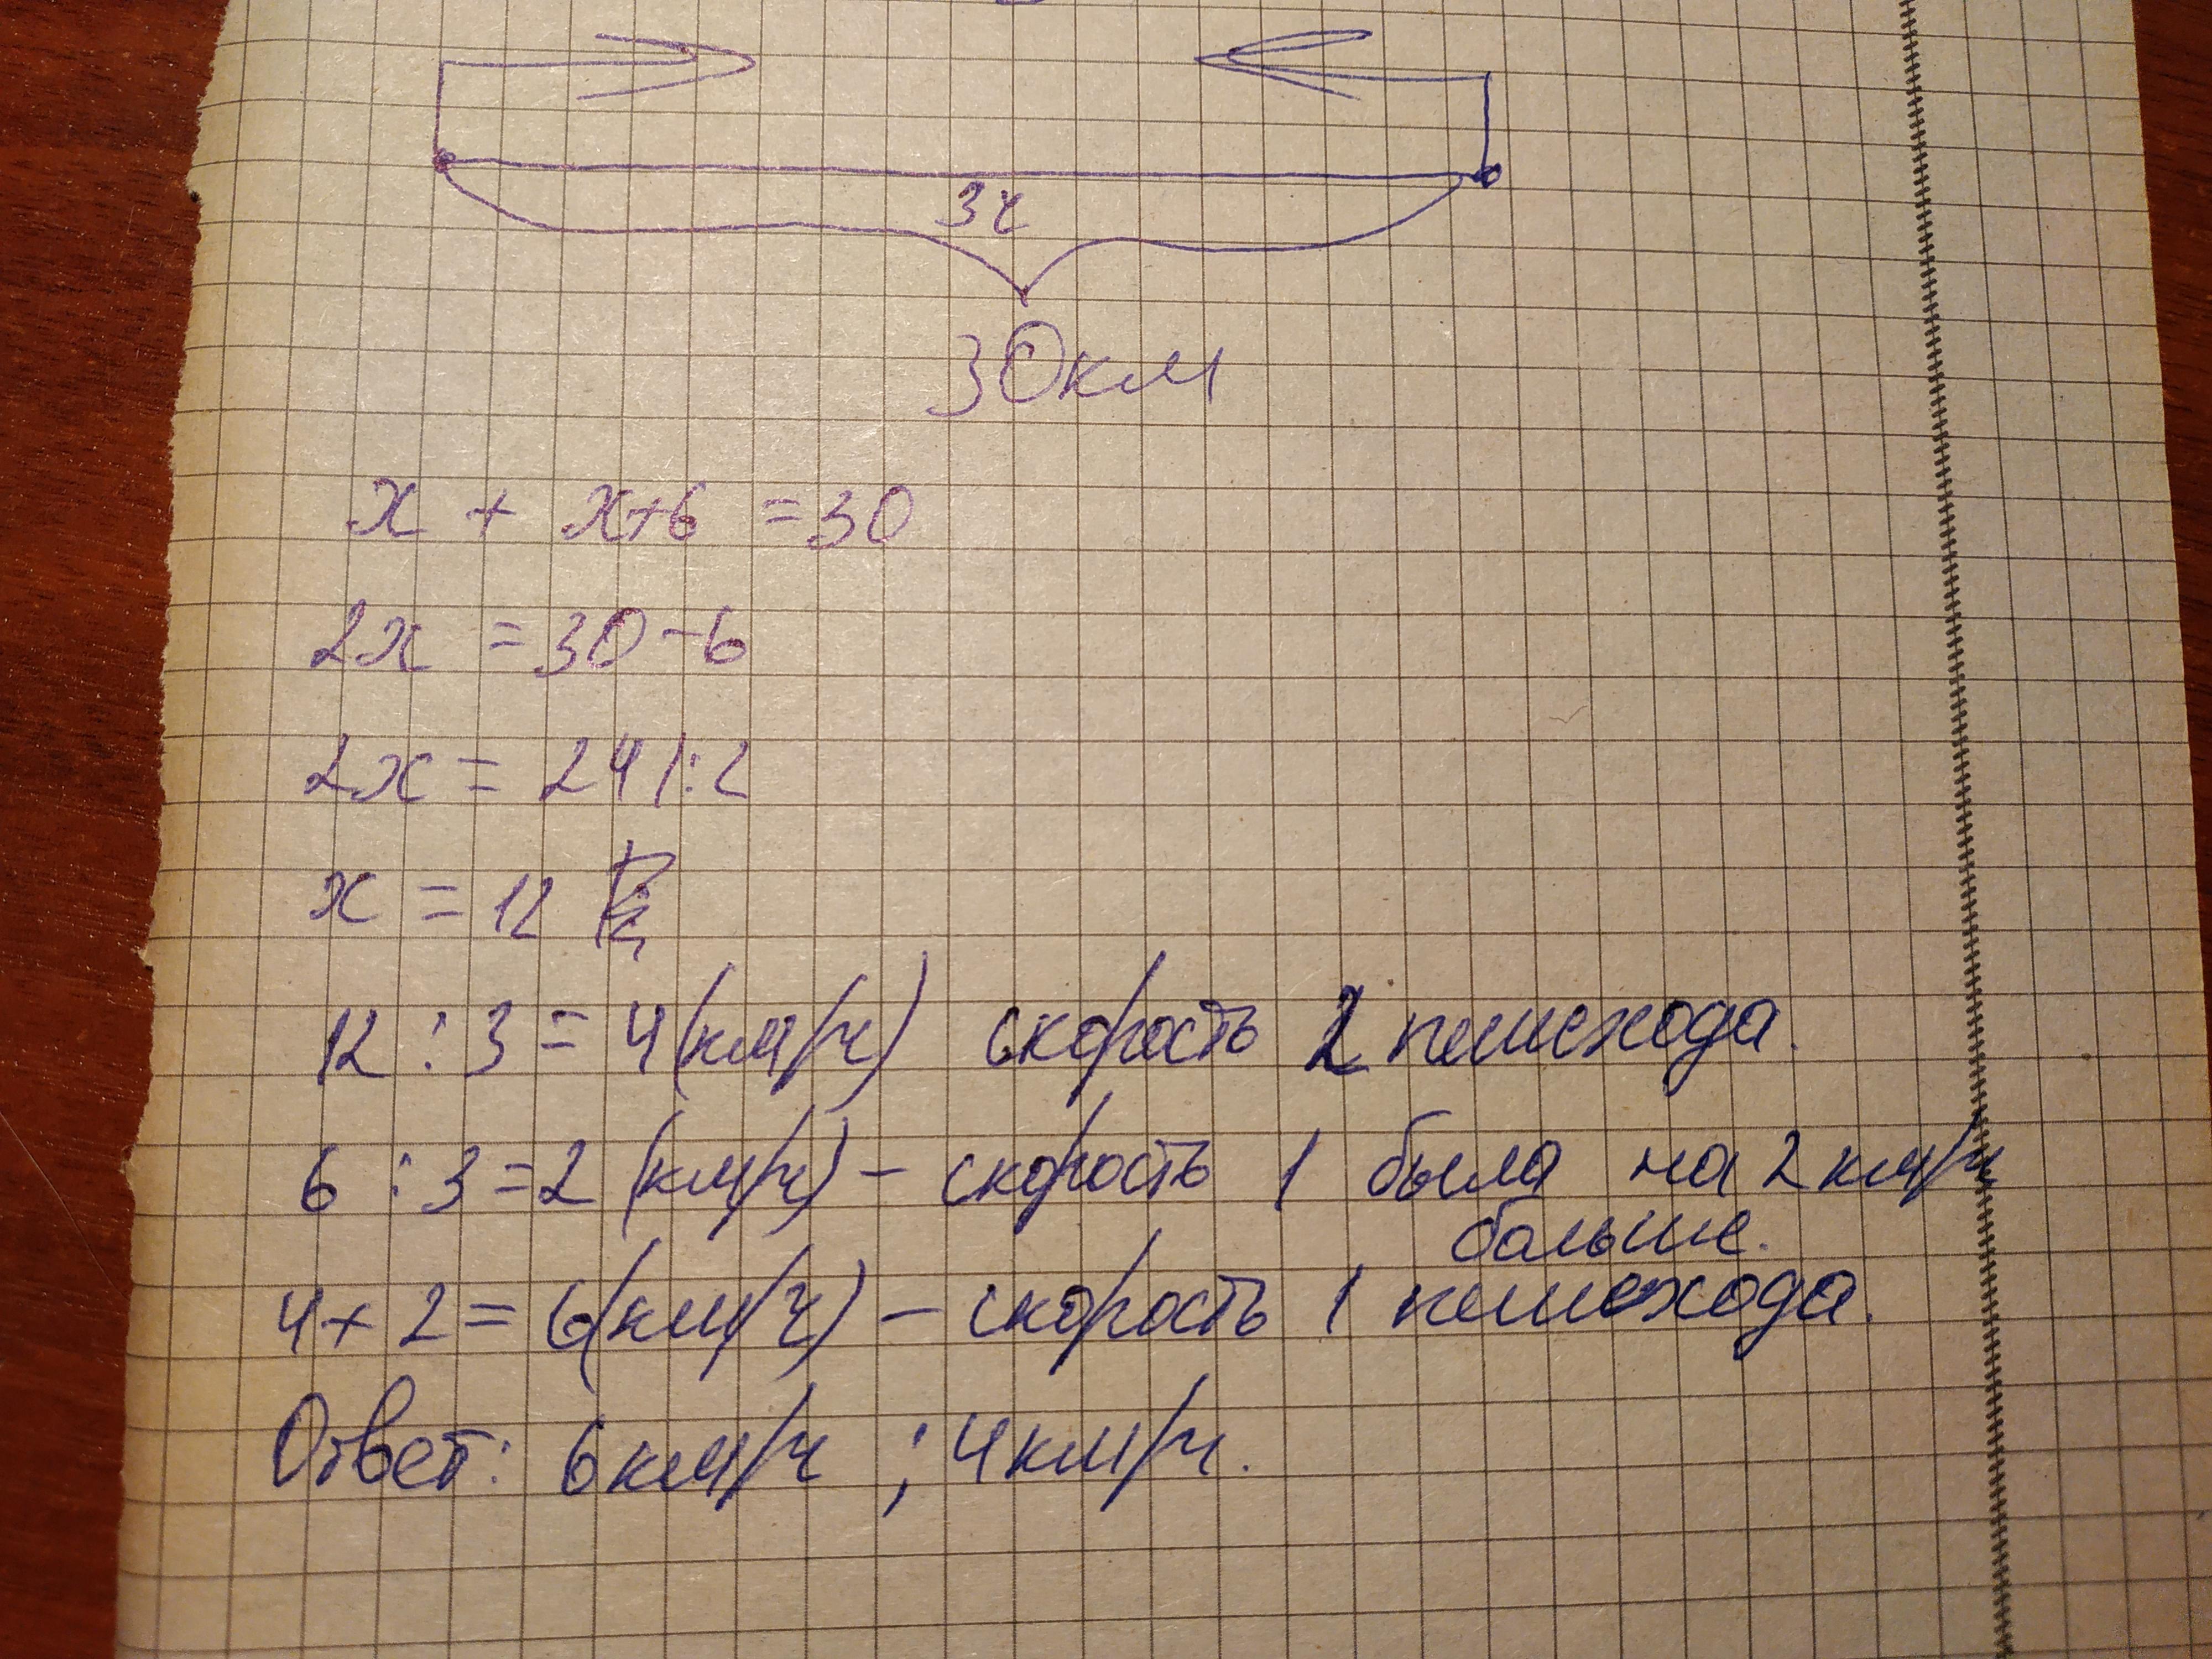 3ч
30км
x + x+6 =30
2x =30-6
2x = 24 |:2
x = 12
12 : 3 = 4(км/ч) скорость 2 пешехода.
6 : 3 = 2 (км/ч) - скорость 1 была на 2 км/ч
больше.
4+2 = 6(км/ч) - скорость 1 пешехода.
Ответ: 6км/ч ; 4км/ч.